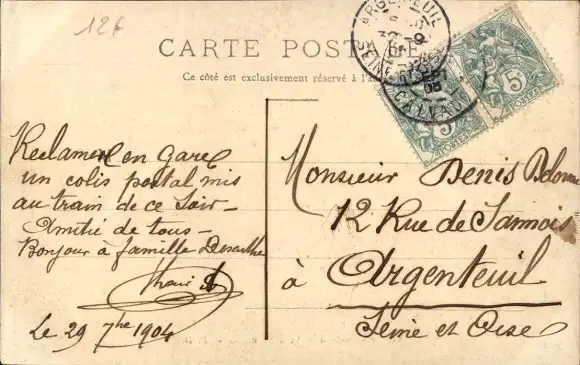 12f
CARTE POSTALE
Ce côté est exclusivement réservé à l'a
ARGENTEUIL
SEINE
CALVADOS
5c
POSTES
5c
POSTES
Reclamer en gare
un colis postal mis
au train de ce Soir_
Amitié de tous_
Bonjour à famille
Le 29 7bre 1904
Monsieur Denis
12 Rue de Sannois
à Argenteuil
Seine et Oise